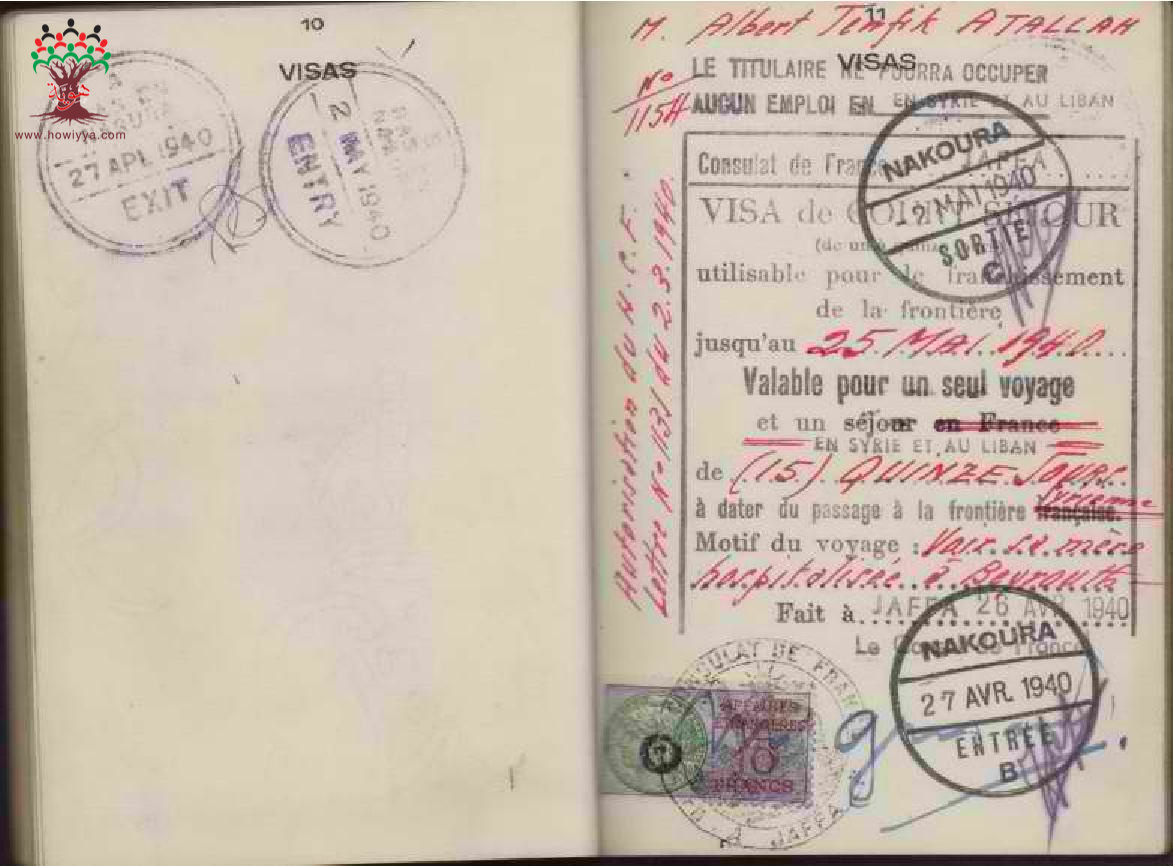 10
VISAS
www.howiyya.com
27 APL 1940
EXIT
2 MAY 1940
ENTRY
11
VISAS
M. Albert Tewfik ATALLAH
LE TITULAIRE NE POURRA OCCUPER
AUCUN EMPLOI EN EN SYRIE ET AU LIBAN
No
1154
Autorisation du H.C.F.
Lettre No 1131 du 2.3.1940.
Consulat de France JAFFA
VISA de COURT SÉJOUR
utilisable pour le franchissement
de la frontière
jusqu'au 25 MAI 1940
Valable pour un seul voyage
et un séjour en France
EN SYRIE ET AU LIBAN
de (15) QUINZE Jours
à dater du passage à la frontière française.
Syrienne
Motif du voyage : Voir sa mère
hospitalisée à Beyrouth
Fait à JAFFA 26 AVR 1940
Le Consul de France
NAKOURA
2 MAI 1940
SORTIE
C
NAKOURA
27 AVR. 1940
ENTRÉE
B
CONSULAT DE FRANCE
A JAFFA
AFFAIRES
ETRANGERES
10
FRANCS